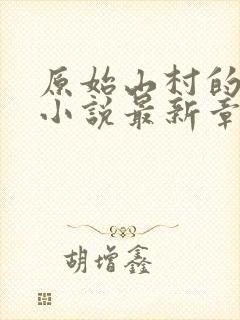 原始山村的
小说最新章
胡增鑫